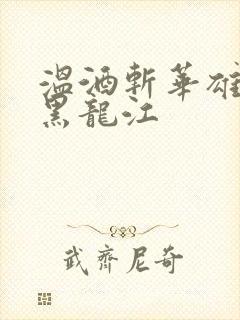 温酒斬華雄
黑龍江
武齊尼奇